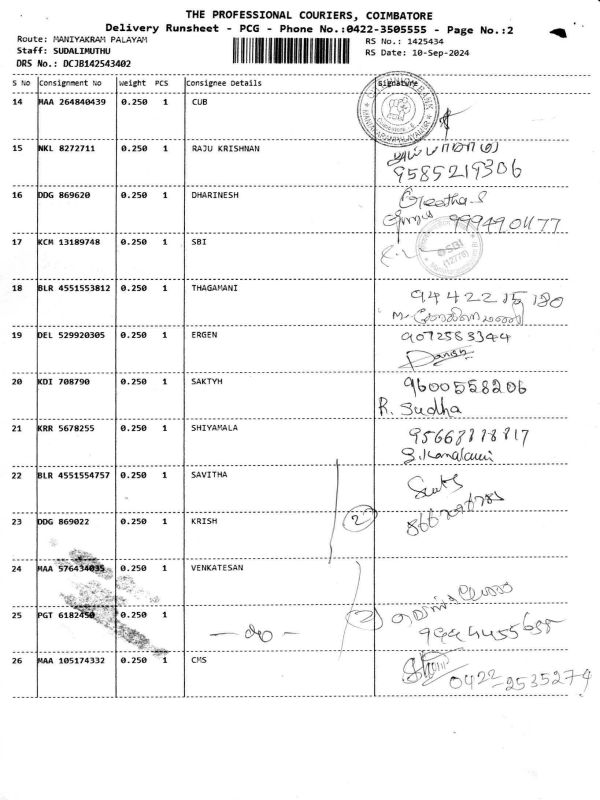 THE PROFESSIONAL COURIERS, COIMBATORE
Delivery Runsheet - PCG - Phone No.:0422-3505555 - Page No.:2
Route: MANIYAKRAM PALAYAM
RS No.: 1425434
Staff: SUDALIMUTHU
RS Date: 10-Sep-2024
DRS No.: DCJB142543402
S No Consignment No Weight PCS Consignee Details Signature
14 MAA 264840439 0.250 1 CUB
15 NKL 8272711 0.250 1 RAJU KRISHNAN
9585219306
16 DDG 869620 0.250 1 DHARINESH Geetha.S
9994901177
17 KCM 13189748 0.250 1 SBI
SBI
(12776)
18 BLR 4551553812 0.250 1 THAGAMANI 94422 15 180
19 DEL 529920305 0.250 1 ERGEN 9072583344
20 KDI 708790 0.250 1 SAKTYH 9600558206
R. Sudha
21 KRR 5678255 0.250 1 SHIYAMALA
S.Kamalaveni
22 BLR 4551554757 0.250 1 SAVITHA
23 DDG 869022 0.250 1 KRISH 2
24 MAA 576434035 0.250 1 VENKATESAN
25 PGT 6182450 0.250 1 - do - 2
26 MAA 105174332 0.250 1 CMS
0422-2535274